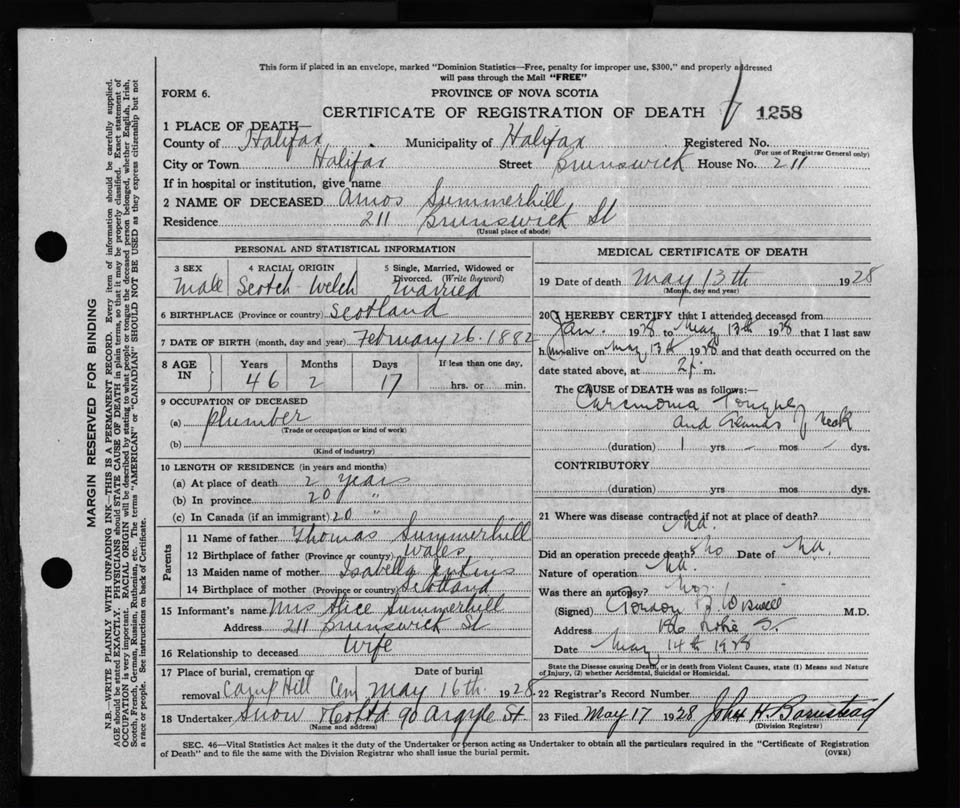 This form if placed in an envelope, marked "Dominion Statistics—Free, penalty for improper use, $300," and properly addressed
will pass through the Mail "FREE"
FORM 6.
PROVINCE OF NOVA SCOTIA
CERTIFICATE OF REGISTRATION OF DEATH
1258
1 PLACE OF DEATH—
County of Halifax Municipality of Halifax Registered No.
(For use of Registrar General only)
City or Town Halifax Street Brunswick House No. 211
If in hospital or institution, give name
2 NAME OF DECEASED Amos Summerhill
Residence 211 Brunswick St
(Usual place of abode)
PERSONAL AND STATISTICAL INFORMATION
3 SEX Male
4 RACIAL ORIGIN Scotch-Welch
5 Single, Married, Widowed or Divorced. (Write the word) Married
6 BIRTHPLACE (Province or country) Scotland
7 DATE OF BIRTH (month, day and year) February 26. 1882
8 AGE IN Years 46 Months 2 Days 17 If less than one day, hrs. or min.
9 OCCUPATION OF DECEASED
(a) Plumber
(Trade or occupation or kind of work)
(b)
(Kind of industry)
10 LENGTH OF RESIDENCE (in years and months)
(a) At place of death 2 years
(b) In province 20 "
(c) In Canada (if an immigrant) 20 "
Parents
11 Name of father Thomas Summerhill
12 Birthplace of father (Province or country) Wales
13 Maiden name of mother Isabella Jenkins
14 Birthplace of mother (Province or country) Scotland
15 Informant's name Mrs Alice Summerhill
Address 211 Brunswick St
16 Relationship to deceased Wife
17 Place of burial, cremation or removal Camp Hill Cem
Date of burial May 16th. 1928
18 Undertaker Snow & Co Ltd 90 Argyle St
(Name and address)
MEDICAL CERTIFICATE OF DEATH
19 Date of death May 13th 1928
(Month, day and year)
20 I HEREBY CERTIFY that I attended deceased from
Jan. 1928 to May 13th 1928 that I last saw
him alive on May 13th 1928 and that death occurred on the
date stated above, at 2 p. m.
The CAUSE OF DEATH was as follows:—
Carcinoma Tongue
and Glands of neck
(duration) 1 yrs. – mos. – dys.
CONTRIBUTORY
(duration) yrs mos. dys.
21 Where was disease contracted if not at place of death?
Na.
Did an operation precede death? No Date of Na.
Nature of operation Na.
Was there an autopsy? No.
(Signed) Gordon B. Wiswell M.D.
Address Robie St.
Date May 14th 1928
State the Disease causing Death, or in death from Violent Causes, state (1) Means and Nature
of Injury, (2) whether Accidental, Suicidal or Homicidal.
22 Registrar's Record Number
23 Filed May 17 1928 John H. Barnstead
(Division Registrar)
SEC. 46—Vital Statistics Act makes it the duty of the Undertaker or person acting as Undertaker to obtain all the particulars required in the "Certificate of Registration
of Death" and to file the same with the Division Registrar who shall issue the burial permit.
(OVER)
MARGIN RESERVED FOR BINDING
N.B.—WRITE PLAINLY WITH UNFADING INK—THIS IS A PERMANENT RECORD. Every item of information should be carefully supplied.
AGE should be stated EXACTLY. PHYSICIANS should STATE CAUSE OF DEATH in plain terms, so that it may be properly classified. Exact statement of
OCCUPATION is very important. RACIAL ORIGIN will be described by stating to what people or tongue the deceased person belonged, whether English, Irish,
Scotch, French, German, Russian, Ruthenian, etc. The terms "AMERICAN" or "CANADIAN" SHOULD NOT BE USED as they express citizenship but not
a race or people. See instructions on back of Certificate.